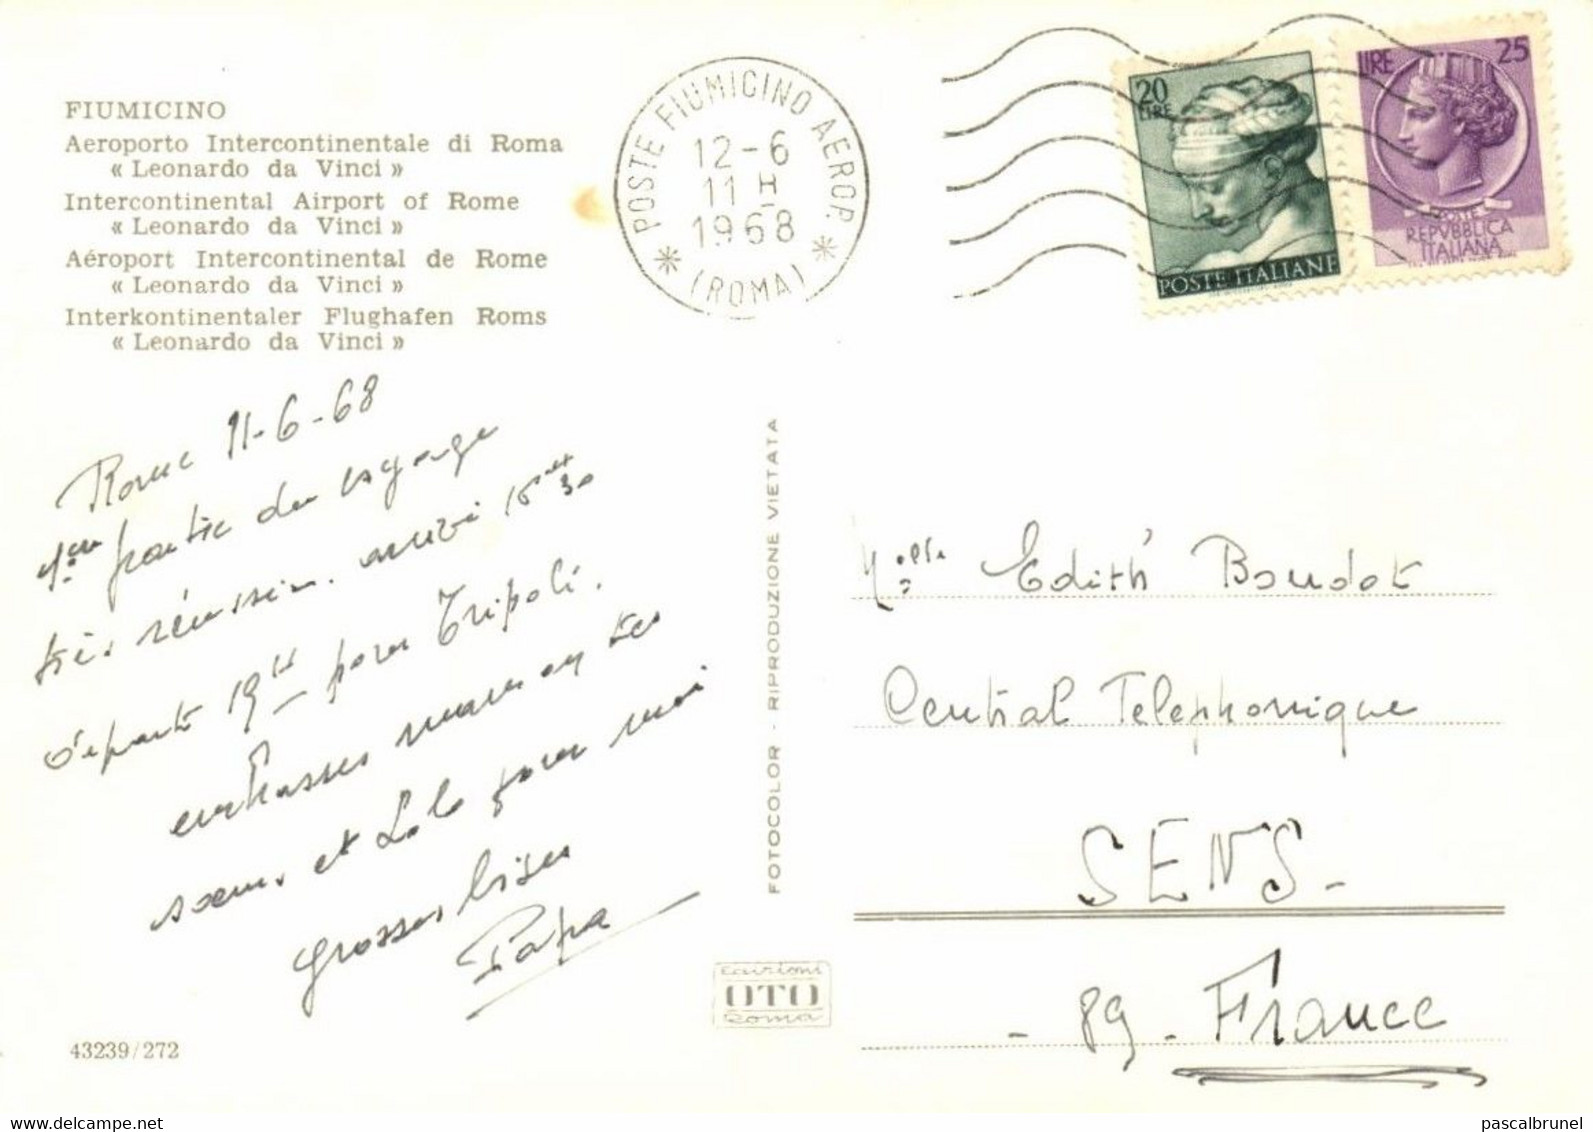 FIUMICINO
Aeroporto Intercontinentale di Roma
« Leonardo da Vinci »
Intercontinental Airport of Rome
« Leonardo da Vinci »
Aéroport Intercontinental de Rome
« Leonardo da Vinci »
Interkontinentaler Flughafen Roms
« Leonardo da Vinci »
POSTE FIUMICINO AEROP.
12-6
11 H
1968
* (ROMA) *
20
LIRE
POSTE ITALIANE
LIRE 25
POSTE
REPVBBLICA
ITALIANA
Rome 11-6-68
1ère partie du voyage
très réussin. arrivé 30
départ 19H pour Tripoli.
embrasses maman tes
sœurs et Lolo pour moi
grosses bises
Papa
43239/272
FOTOCOLOR - RIPRODUZIONE VIETATA
Edizioni
OTO
Roma
Melle Edith Boudot
Central Telephonique
SENS-
- 89 - France
http://www.delcampe.net
pascalbrunel